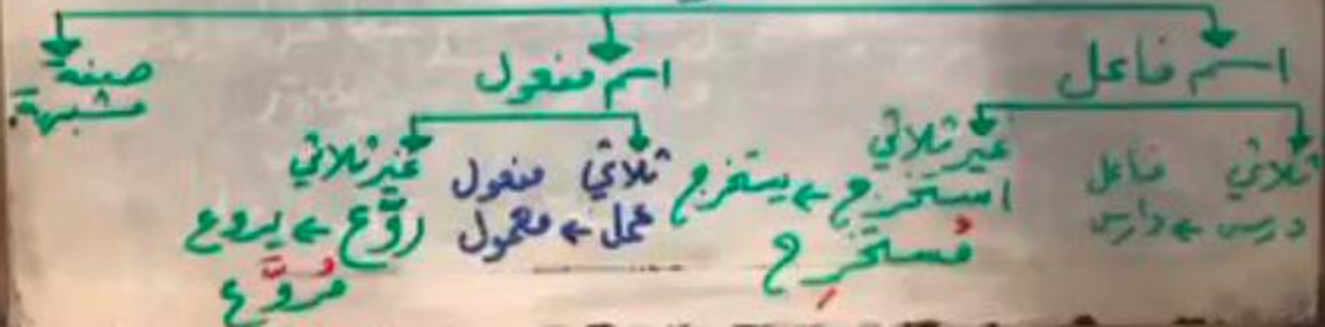 اسم فاعل
ثلاثي فاعل
درس ← دارس
غير ثلاثي
استخرج ← يستخرج
مُستخرِج
اسم مفعول
ثلاثي مفعول
عمل ← معمول
غير ثلاثي
روَّع ← يروع
مُروَّع
صفة
مشبهة